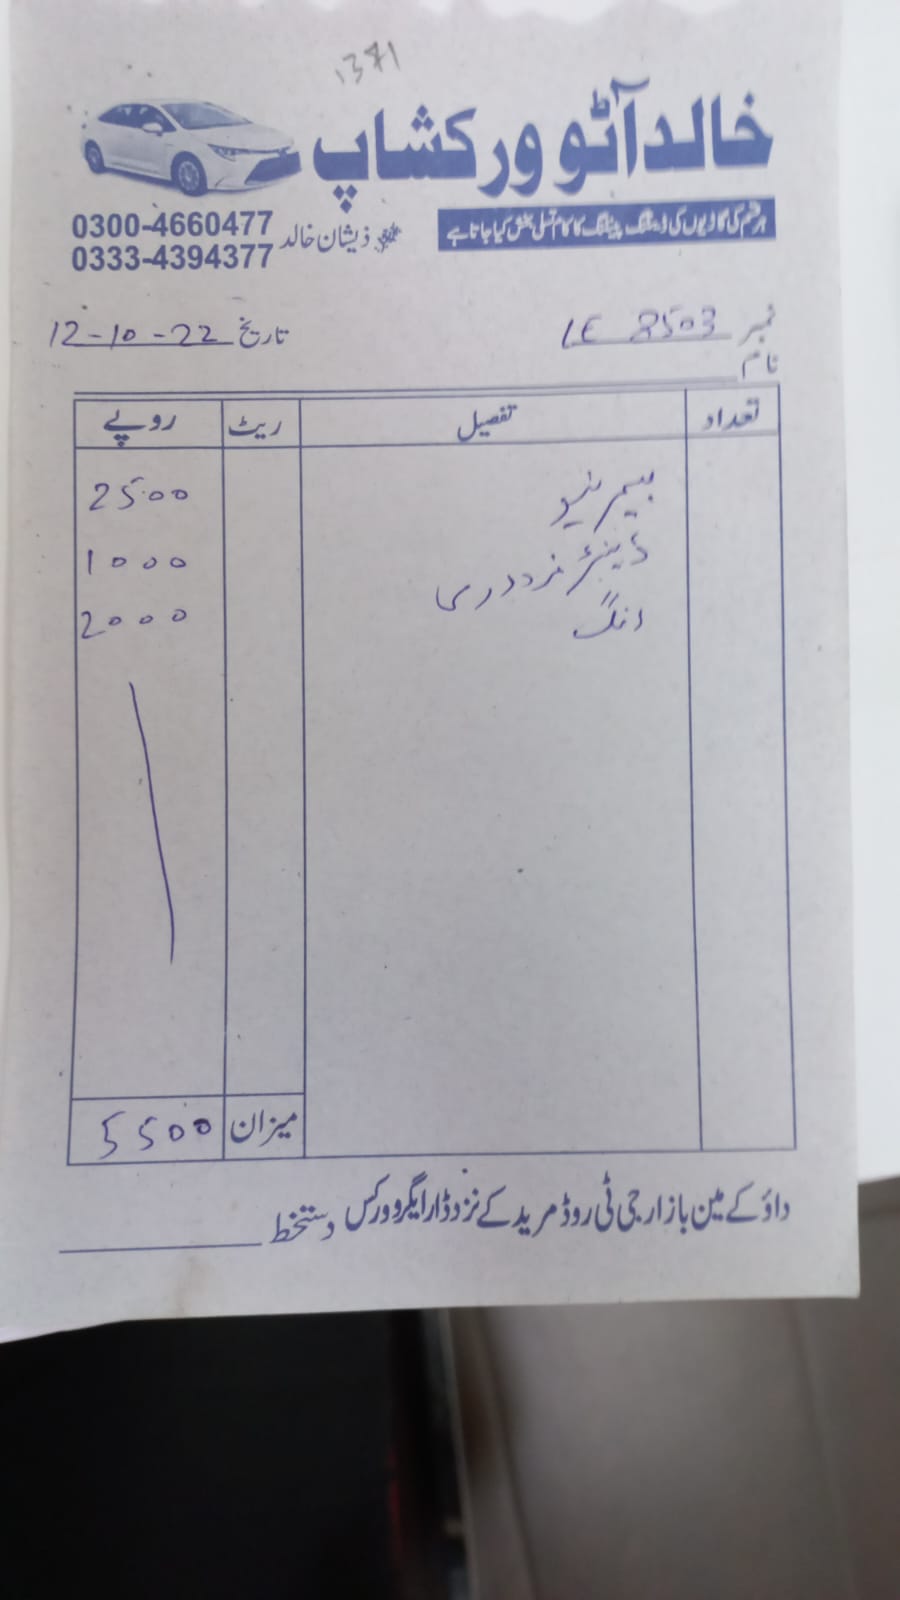 1371
خالد آٹو ورکشاپ
ہر قسم کی گاڑیوں کی ڈینٹنگ پینٹنگ کا کام تسلی بخش کیا جاتا ہے
ذیشان خالد
0300-4660477
0333-4394377
نمبر LE 8503 تاریخ 12-10-22
نام
تعداد تفصیل ریٹ روپے
2500
ڈینٹر مزدوری 1000
رنگ 2000
میزان 5500
داؤکے مین بازار جی ٹی روڈ مریدکے نزد ڈار ایگرو ورکس دستخط